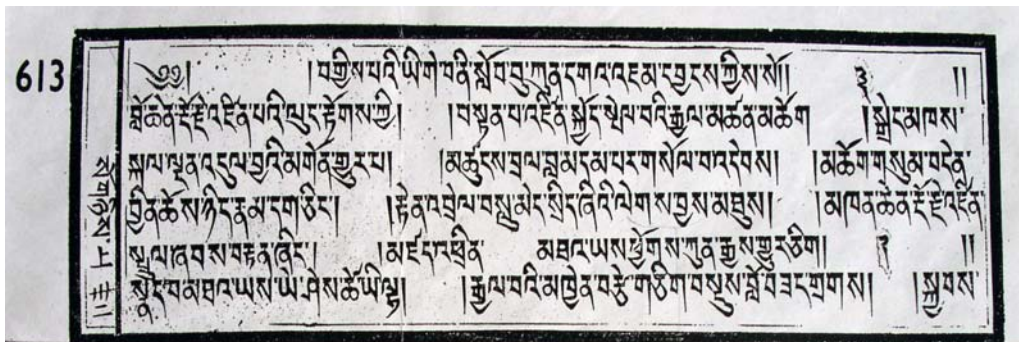 613
༄༅། །བགྲིས་པའི་ཡི་གེ་བནི་སློབ་བུ་ཀུན་དགའ་འཇམ་དབྱངས་ཀྱིས་སོ།། ༣ །།
བློ་ཆེན་རྡོ་རྗེ་འཛིན་པའི་ལུང་རྟོགས་ཀྱི། །བསྟན་པ་འཛིན་སྐྱོང་སྤེལ་བའི་རྒྱལ་མཚན་མཆོག །སྒྲེང་མཁས་
སྐལ་ལྡན་འདུལ་བྱའི་མགོན་གྱུར་པ། །མཚུངས་བྲལ་བླ་མ་དམ་པར་གསོལ་བ་འདེབས། །མཆོག་གསུམ་བདེན་
བྱིན་ཆོས་ཉིད་རྣམ་དག་ཅིང་། །རྟེན་འབྲེལ་བསླུ་མེད་སྲིད་ཞིའི་ལེགས་བྱས་མཐུས། །མཁན་ཆེན་རྡོ་རྗེ་འཛིན་
སྤྲུལ་ཞབས་བརྟན་ཞིང་། །མཛད་འཕྲིན་ མཐའ་ཡས་ཕྱོགས་ཀུན་རྒྱས་གྱུར་ཅིག། ༣ །།
སྣང་བ་མཐའ་ཡས་ཡེ་ཤེས་ཚེ་ཡི་ལྷ། །རྒྱལ་བའི་མཁྱེན་བརྩེ་གཅིག་བསྡུས་བློ་བཟང་གྲགས། །སྐྱབས་